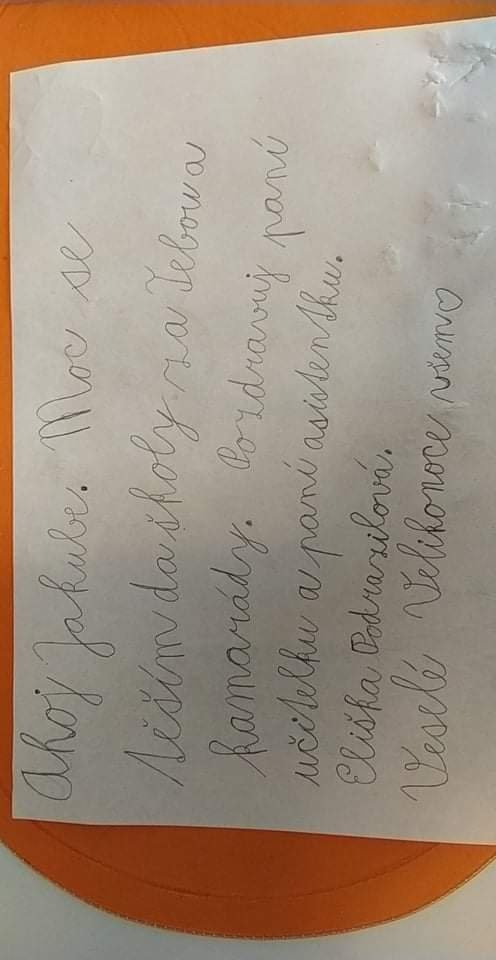 Ahoj Jakube. Moc se
těším da školy za Tebou a
kamarády. Pozdravuj paní
učitelku a paní asistentku.
Eliška Podrazilová.
Veselé Velikonoce všem♡